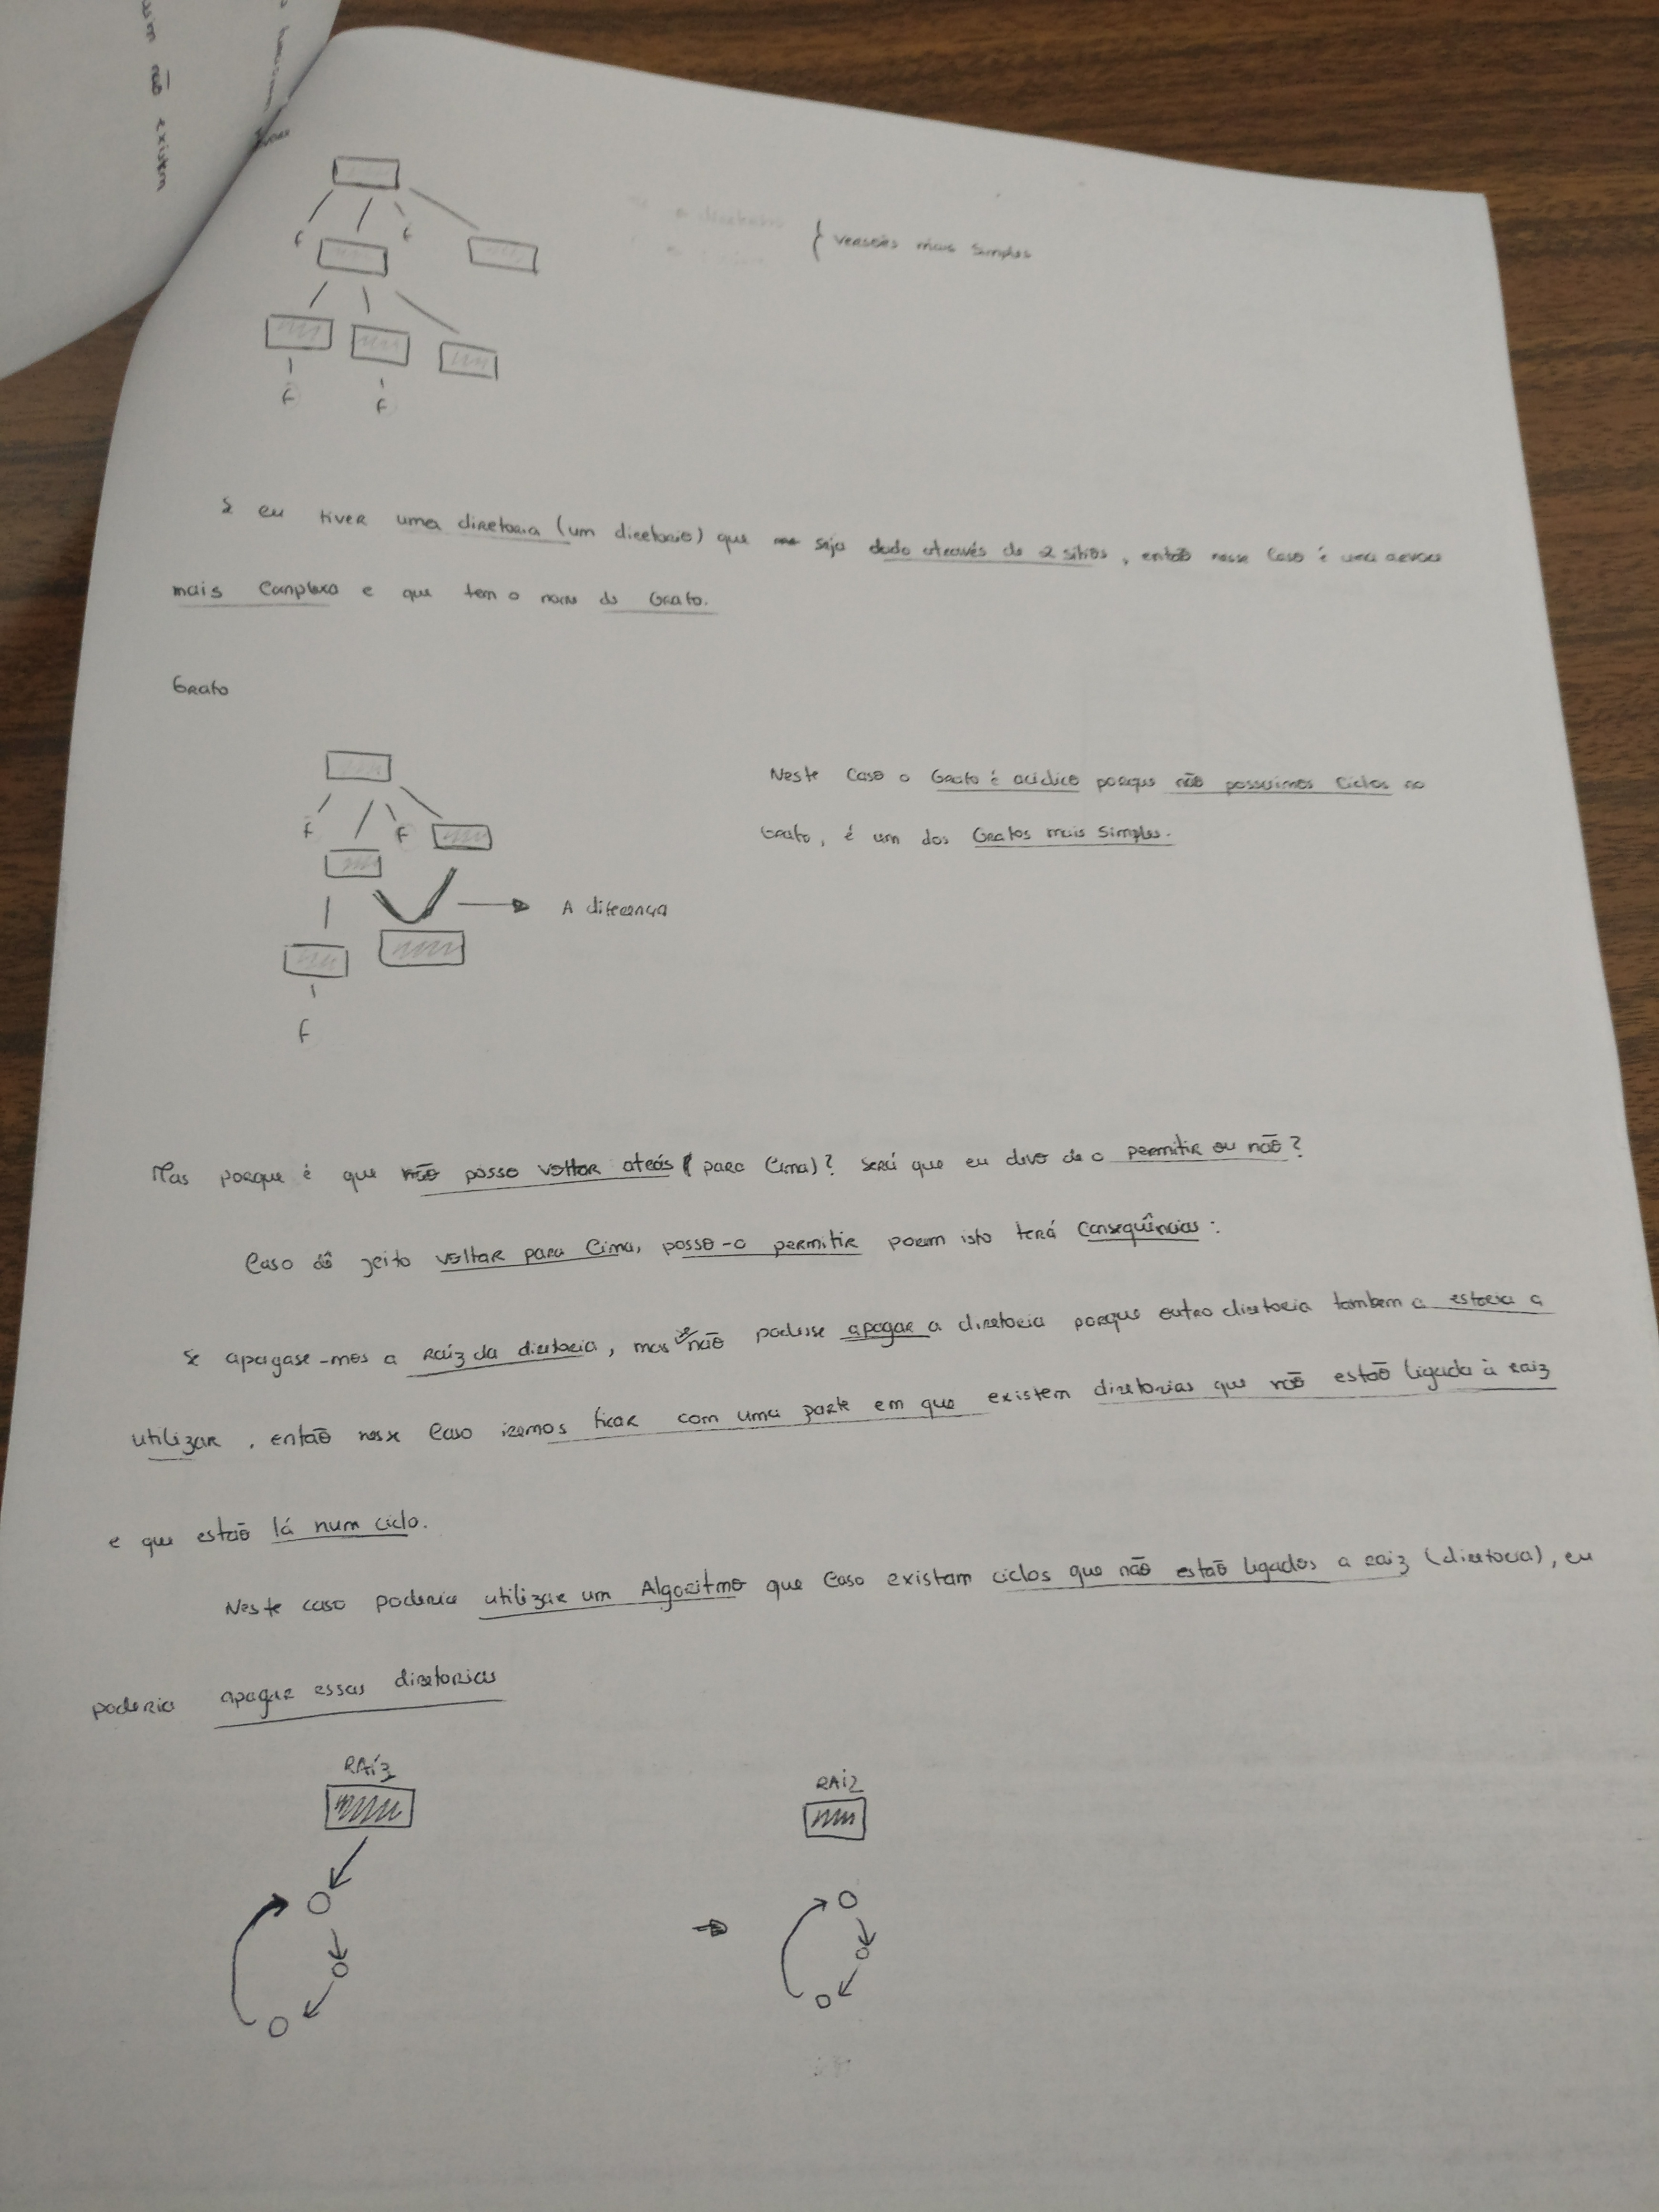 não existem
f
f
{ versões mais simples
f
f
Se eu tiver uma diretoria (um diretorio) que seja dado através de 2 sitios, então nesse caso é uma arvore
mais Complexa e que tem o nome de Grafo.
Grafo
Neste Caso o Grafo é aciclico porque não possuimos Ciclos no
Grafo, é um dos Grafos mais Simples.
f
f
A diferença
f
Mas porque é que não posso voltar atrás (para Cima)? Será que eu devo de o permitir ou não?
Caso dê jeito voltar para Cima, posso-o permitir porem isto terá Consequências:
Se apagase-mos a raiz da diretoria, mas se não podesse apagar a diretoria porque outra diretoria tambem a estaria a
utilizar, então nesse Caso iremos ficar com uma parte em que existem diretorias que não estão ligada à raiz
e que estão lá num ciclo.
Neste caso poderia utilizar um Algoritmo que Caso existam ciclos que não estão ligados a raiz (diretoria), eu
poderia apagar essas diretorias
RAíz
RAiz